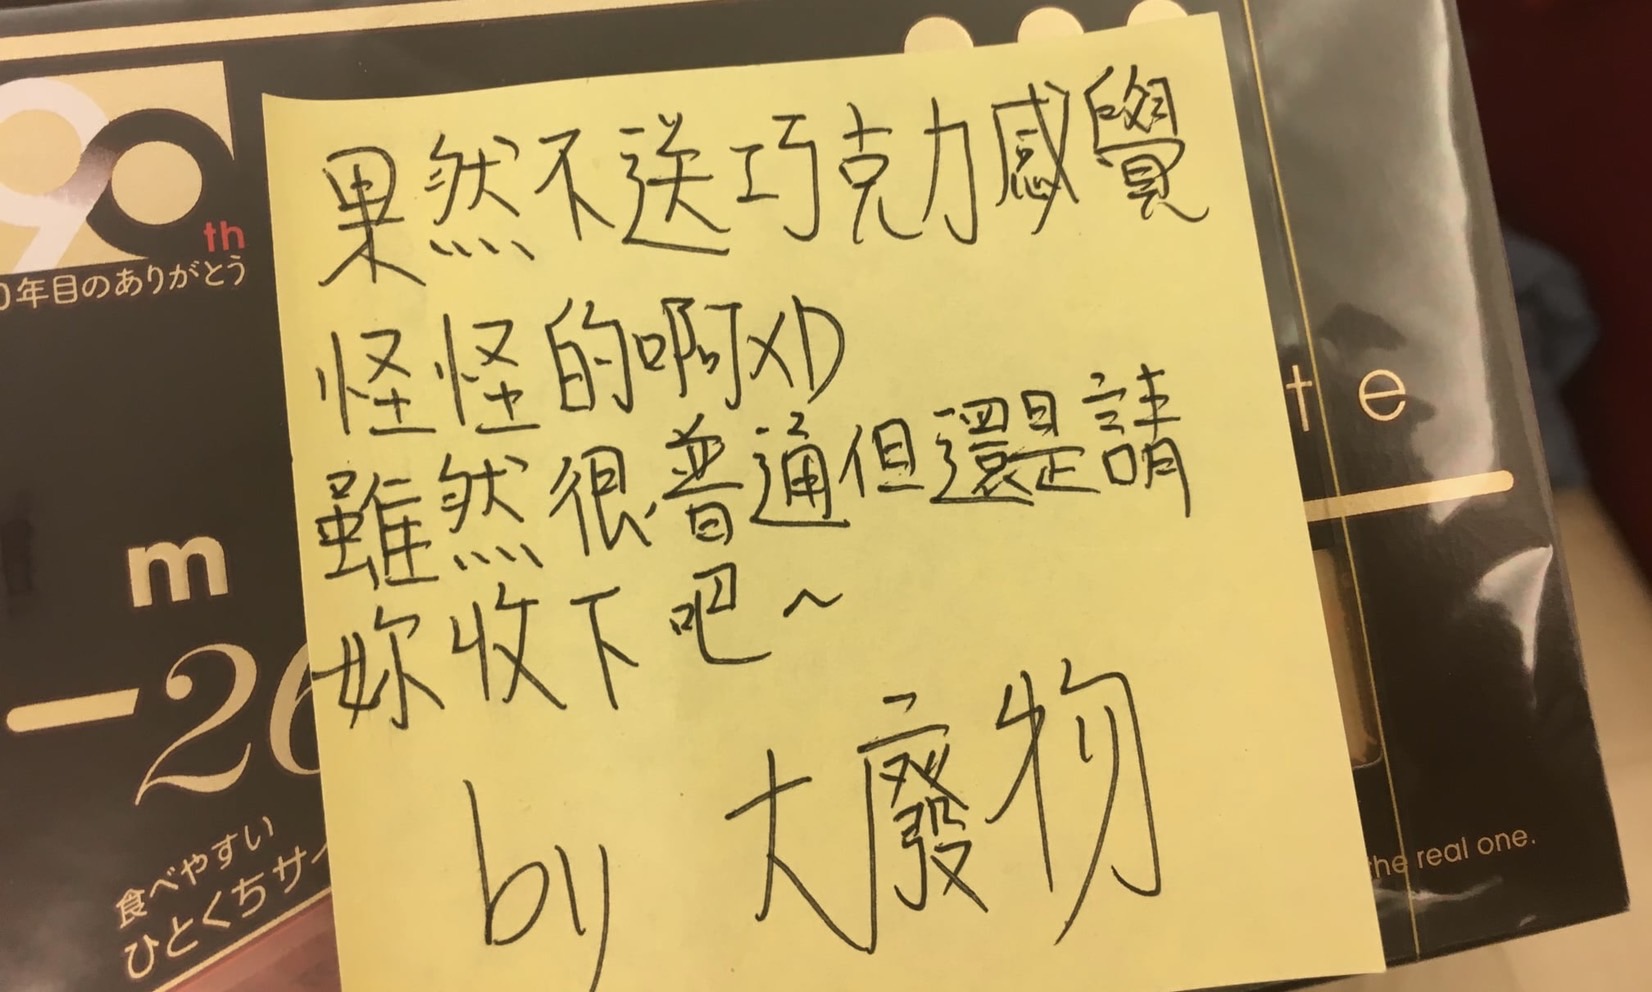 90
th
0年目のありがとう
果然不送巧克力感覺
怪怪的啊XD
雖然很普通但還是請
妳收下吧～
by 大廢物
te
m
26
食べやすい
ひとくちサ
the real one.